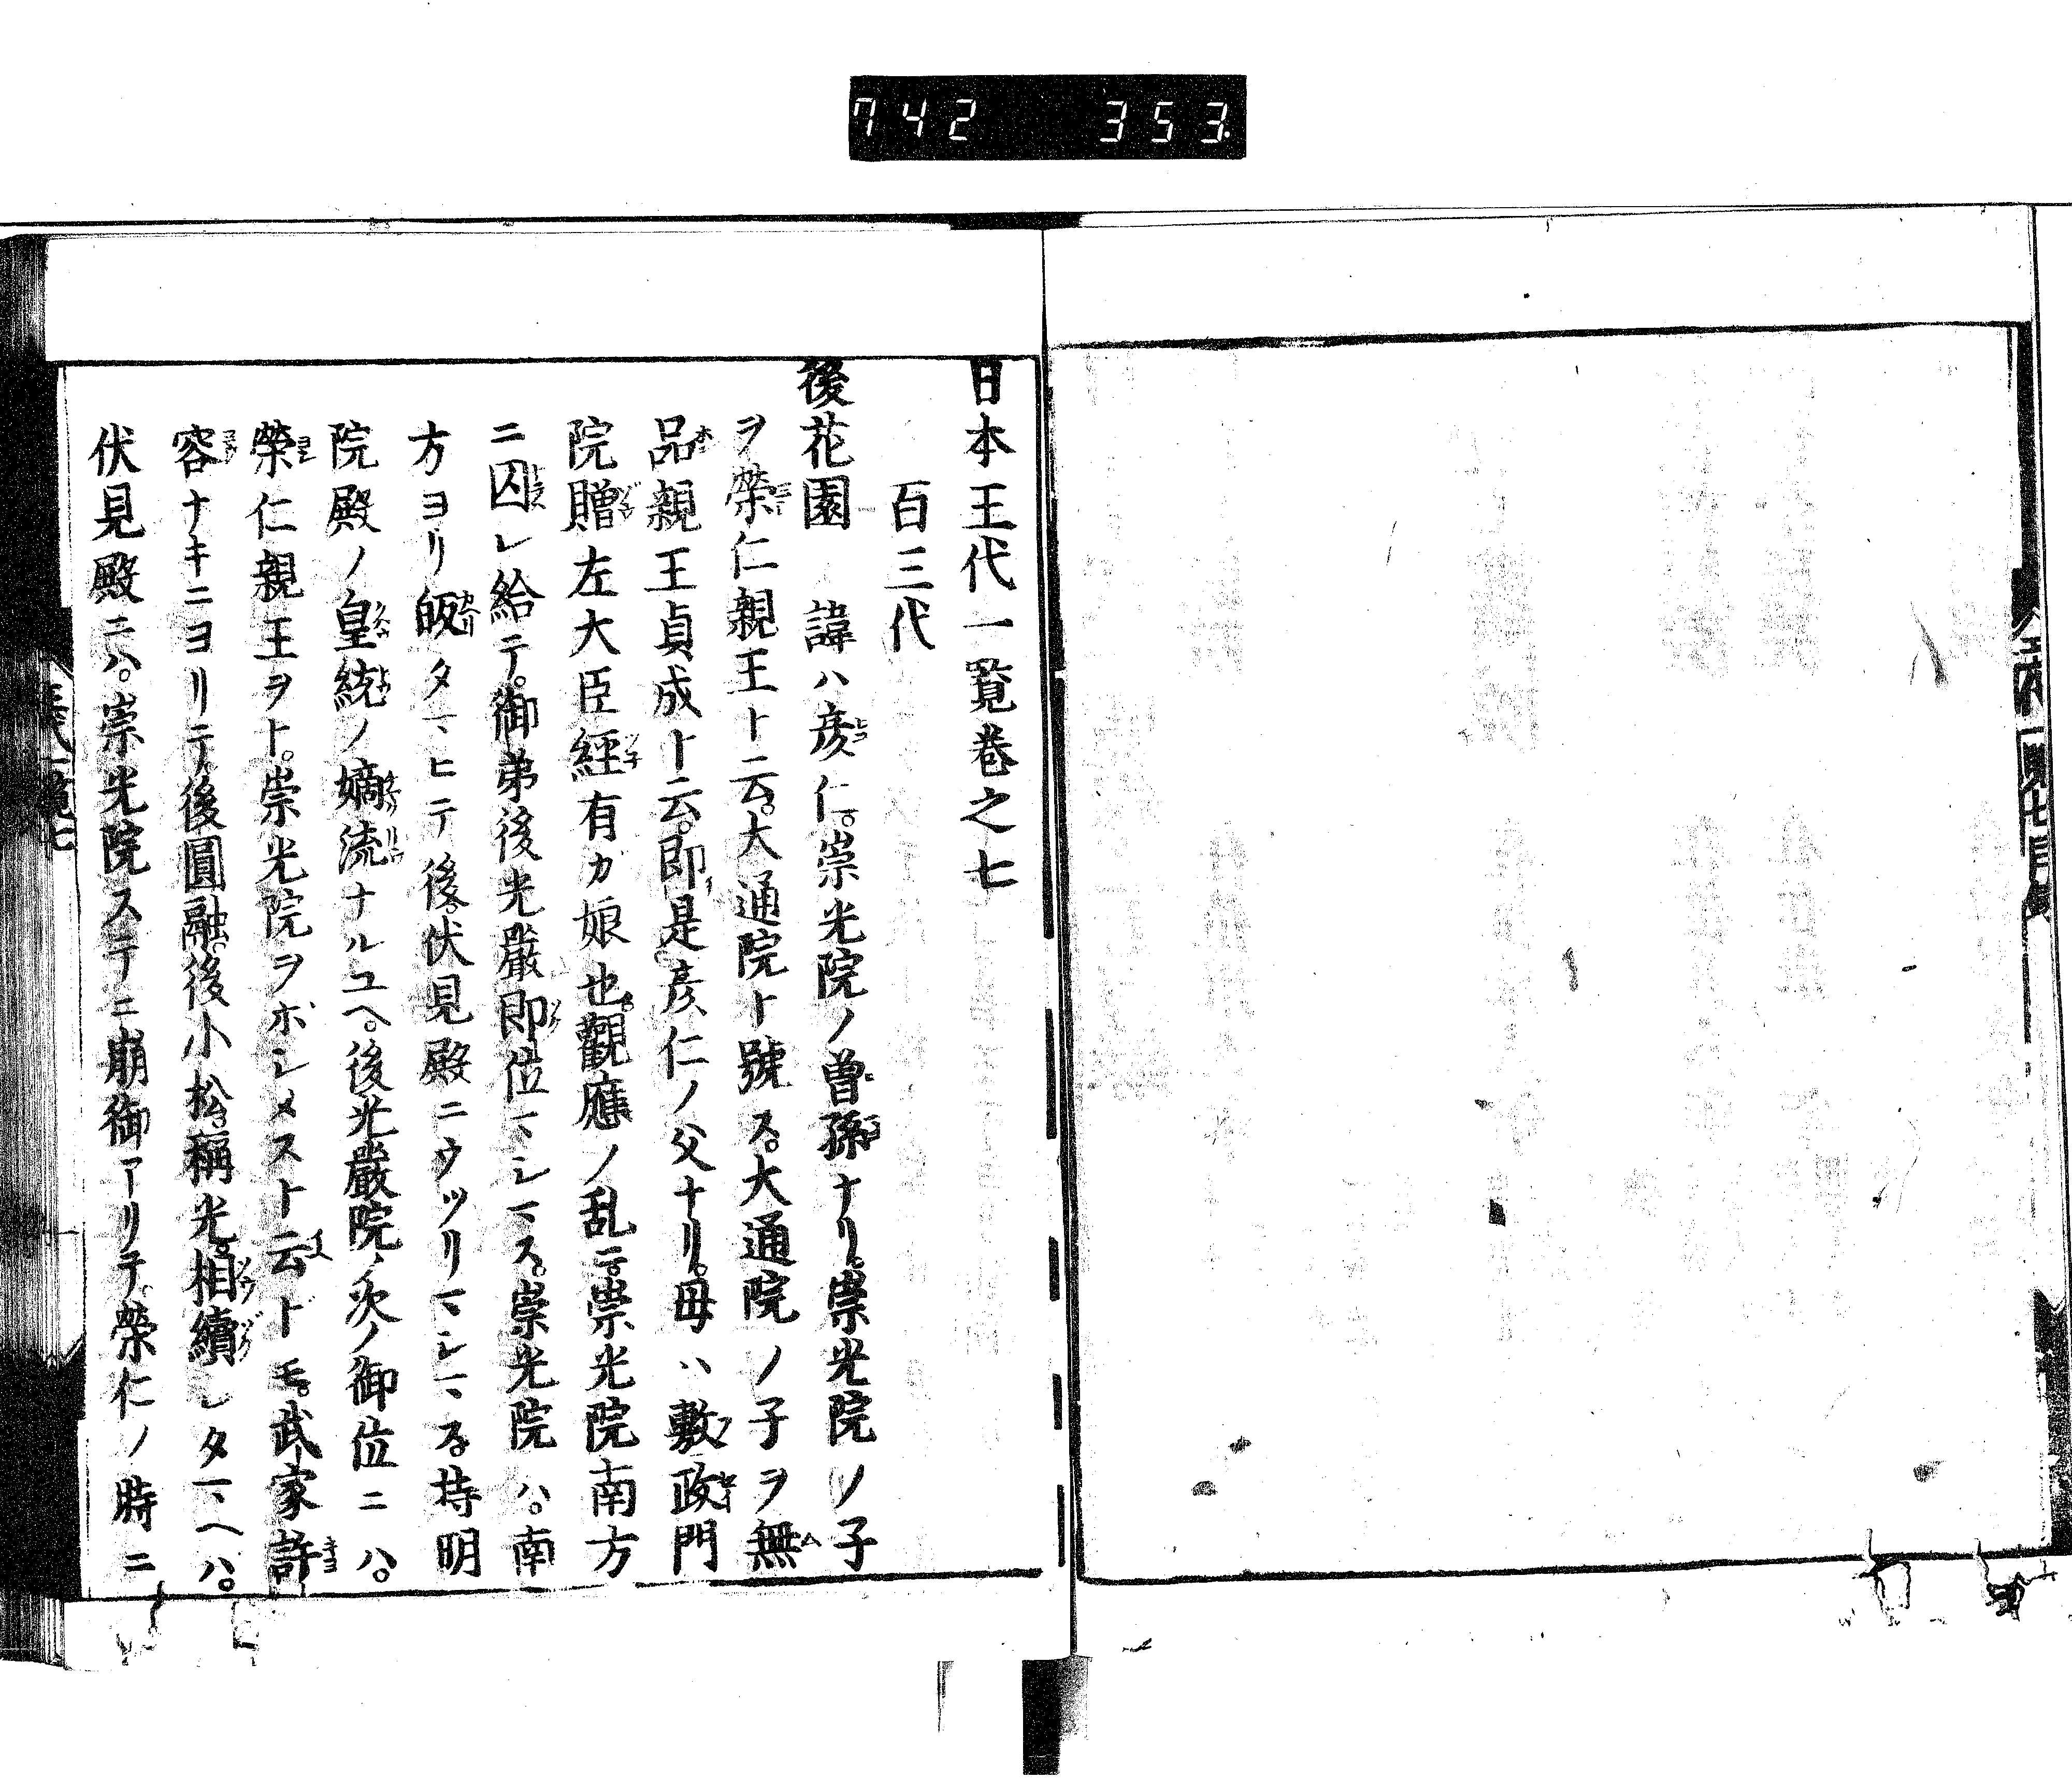 742 353.
日本王代一覧巻之七
百三代
後花園　諱ハ彦仁。崇光院ノ曽孫ナリ。崇光院ノ子
ヲ榮仁親王ト云。大通院ト號ス。大通院ノ子ヲ無
品親王貞成ト云。即是彦仁ノ父ナリ。母ハ敷政門
院贈左大臣經有カ娘也。觀應ノ乱ニ。崇光院南方
ニ囚レ給テ。御弟後光嚴即位マシマス。崇光院ハ。南
方ヨリ皈タマヒテ後。伏見殿ニウツリマシマス。持明
院殿ノ皇統ノ嫡流ナルユヘ。後光嚴院ノ次ノ御位ニハ。
榮仁親王ヲト。崇光院ヲボシメスト云ドモ。武家許
容ナキニヨリテ。後圓融。後小松。稱光。相續シタマヘハ。
伏見殿ニハ。崇光院ステニ崩御アリテ。榮仁ノ時ニ